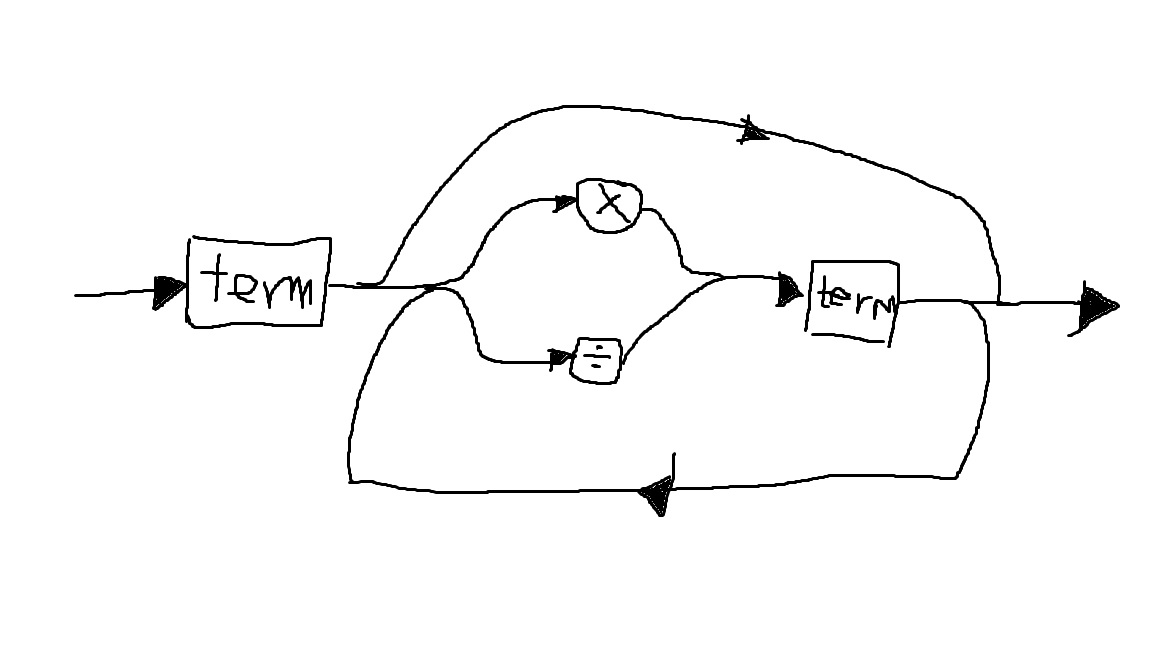 term
×
÷
term